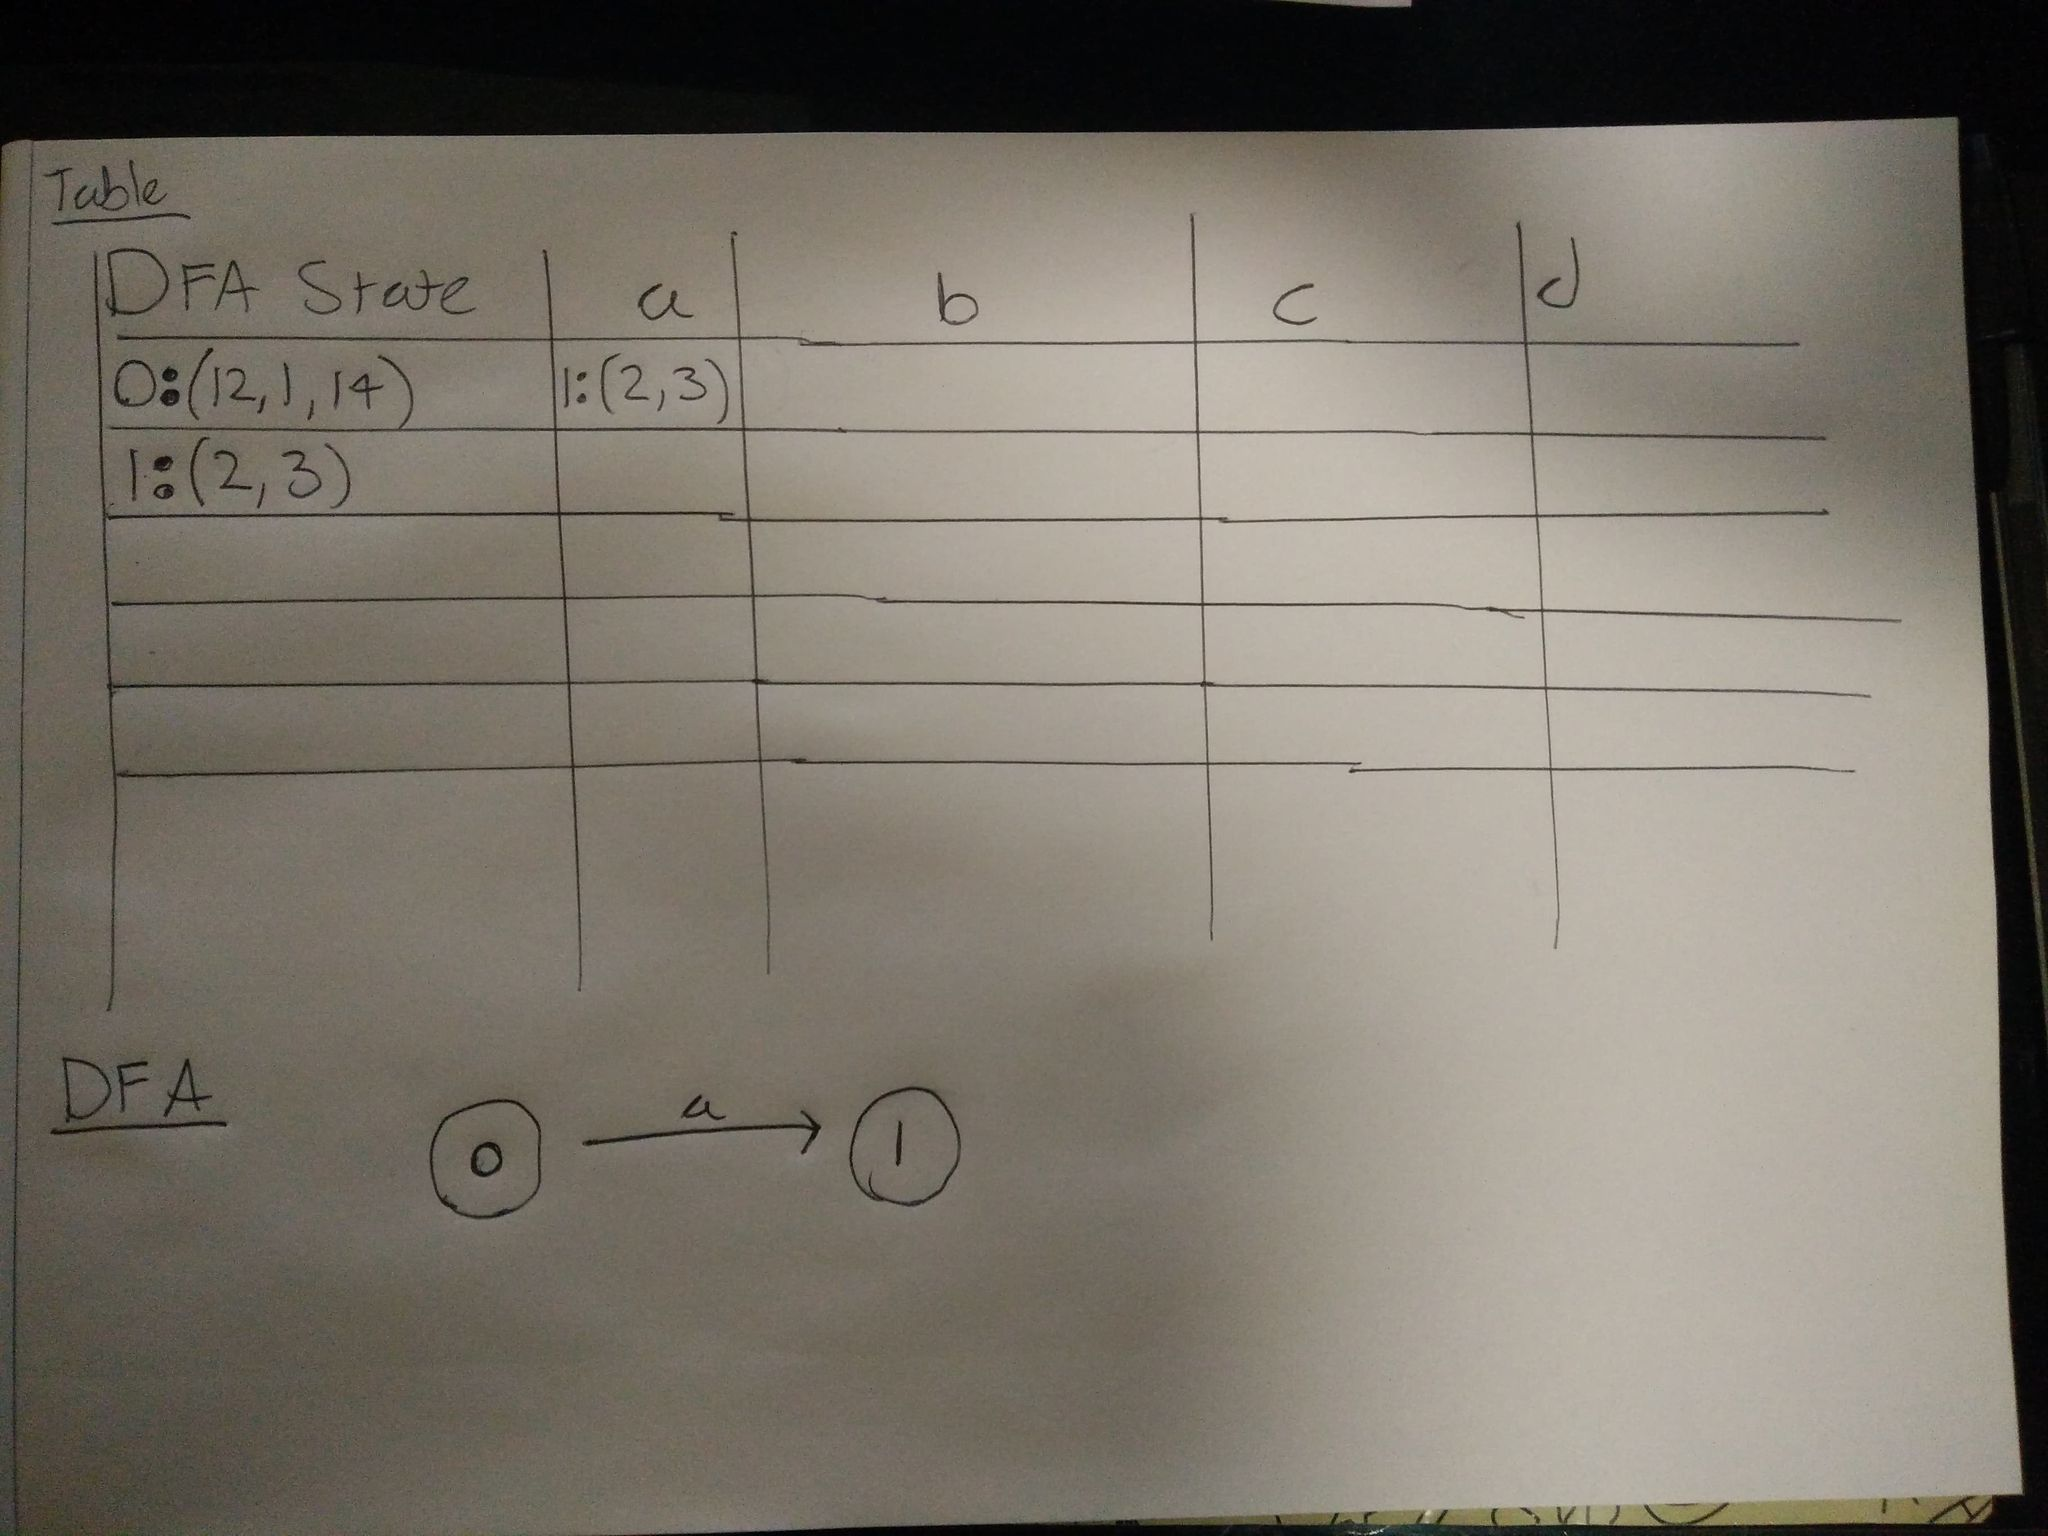 Table
DFA State a b c d
0:(12,1,14) 1:(2,3)
1:(2,3)
DFA
0 a 1